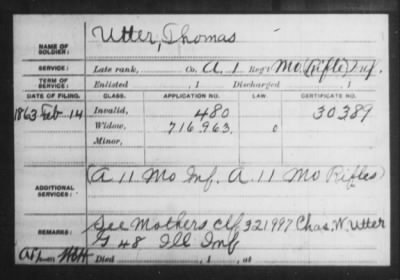 NAME OF SOLDIER: Utter, Thomas
SERVICE: Late rank, Co. A. 1 Reg't Mo (Rifle) Inf.
TERM OF SERVICE: Enlisted , 1 Discharged , 1
DATE OF FILING. CLASS. APPLICATION NO. LAW. CERTIFICATE NO.
1863 Feb 14 Invalid, 480 30389
Widow, 716.963. 0
Minor,
ADDITIONAL SERVICES: (A 11 Mo Inf. A. 11 Mo Rifles)
REMARKS: See Mothers Clf 321997 Chas. W. Utter
G 48 Ill Inf
Died , 1 , at